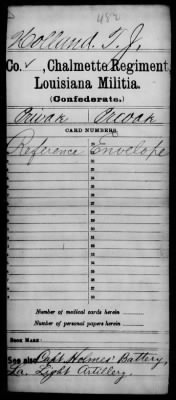 482
Holland, T. J.
Co. , Chalmette Regiment,
Louisiana Militia.
(Confederate.)
Private Private
CARD NUMBERS.
Reference Envelope
Number of medical cards herein
Number of personal papers herein
BOOK MARK:
See also Capt. Holmes' Battery,
La. Light Artillery.